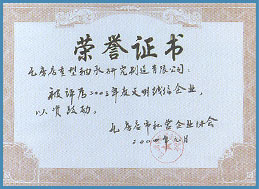 荣誉证书
瓦房店重型轴承研究制造有限公司：
被评为2003年度文明诚信企业，
以资鼓励。
瓦房店市私营企业协会
2004年 月